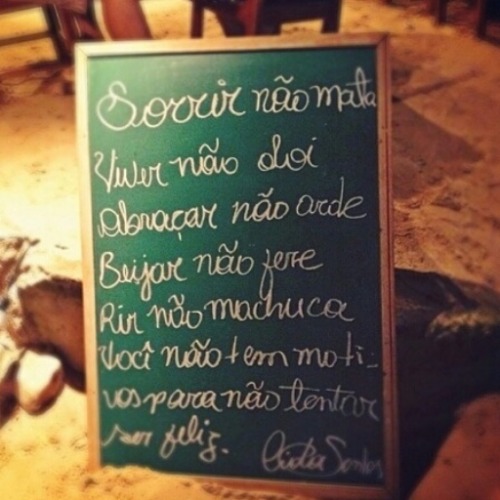 Sorrir não mata
Viver não doi
Abraçar não arde
Beijar não fere
Rir não machuca
Você não tem moti-
vos para não tentar
ser feliz. Santos